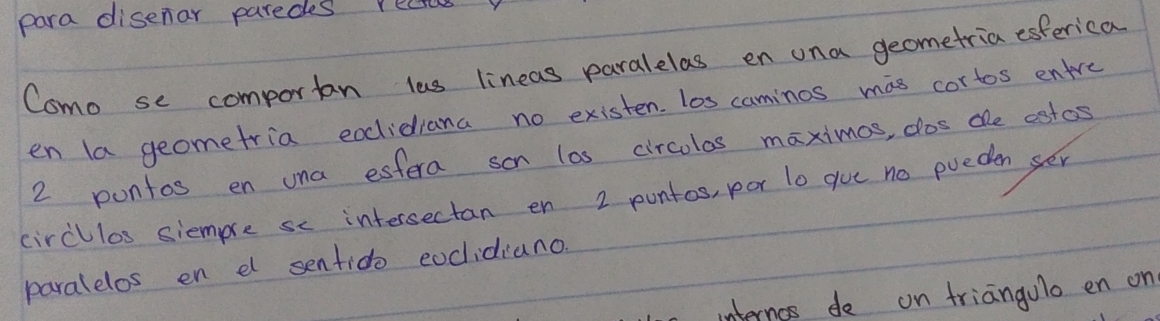 para diseñar paredes rectas y
Como se comportan las lineas paralelas en una geometria esferica
en la geometria euclidiana no existen. los caminos más cortos entre
2 puntos en una esfera son los circulos máximos, dos de estos
circulos siempre se intersectan en 2 puntos, por lo que no pueden ser
paralelos en el sentido euclidiano.
internos de un triángulo en un